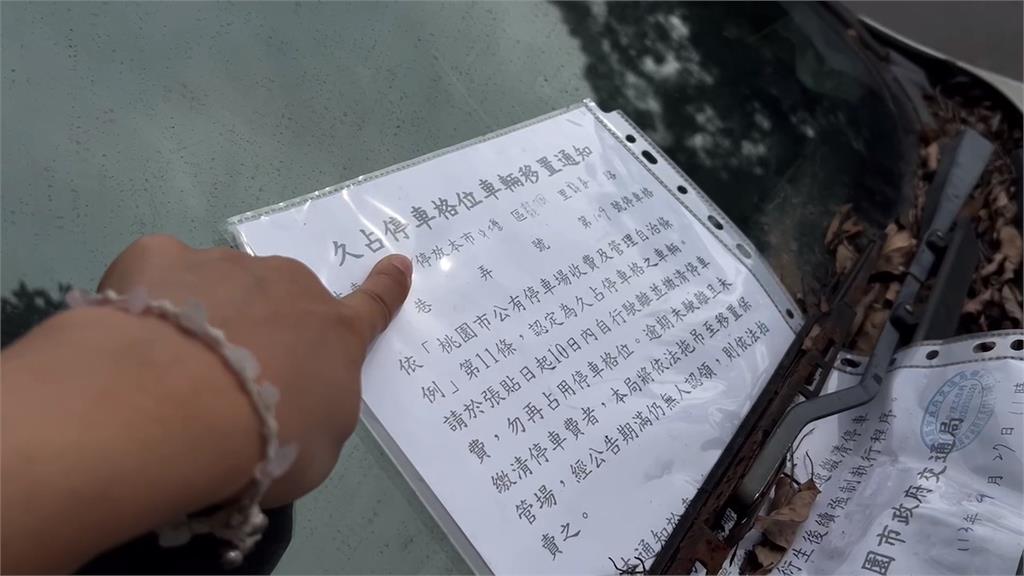 久占停車格位車輛移置通知
停放本市中壢區
巷 弄 號 第 號停車格
依「桃園市公有停車場收費及管理自治條
例」第11條,認定為久占停車格之車輛。
請於張貼日起10日內自行駛離並繳清停車
費,勿再占用停車格位。逾期未駛離且未
繳清停車費者,本局將依法拖吊至移置保
管場,經公告期滿仍無人認領,則依法拍
賣之。
繳清停車
衍生後續強制執行程序
園市政府交通局
113年